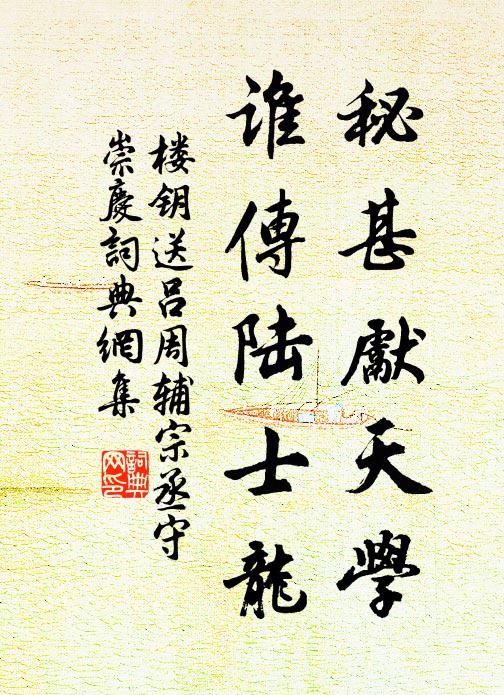 秘甚獻天學
谁傳陆士龍
楼钥送吕周辅宗丞守
崇慶詞典網集
詞典网印